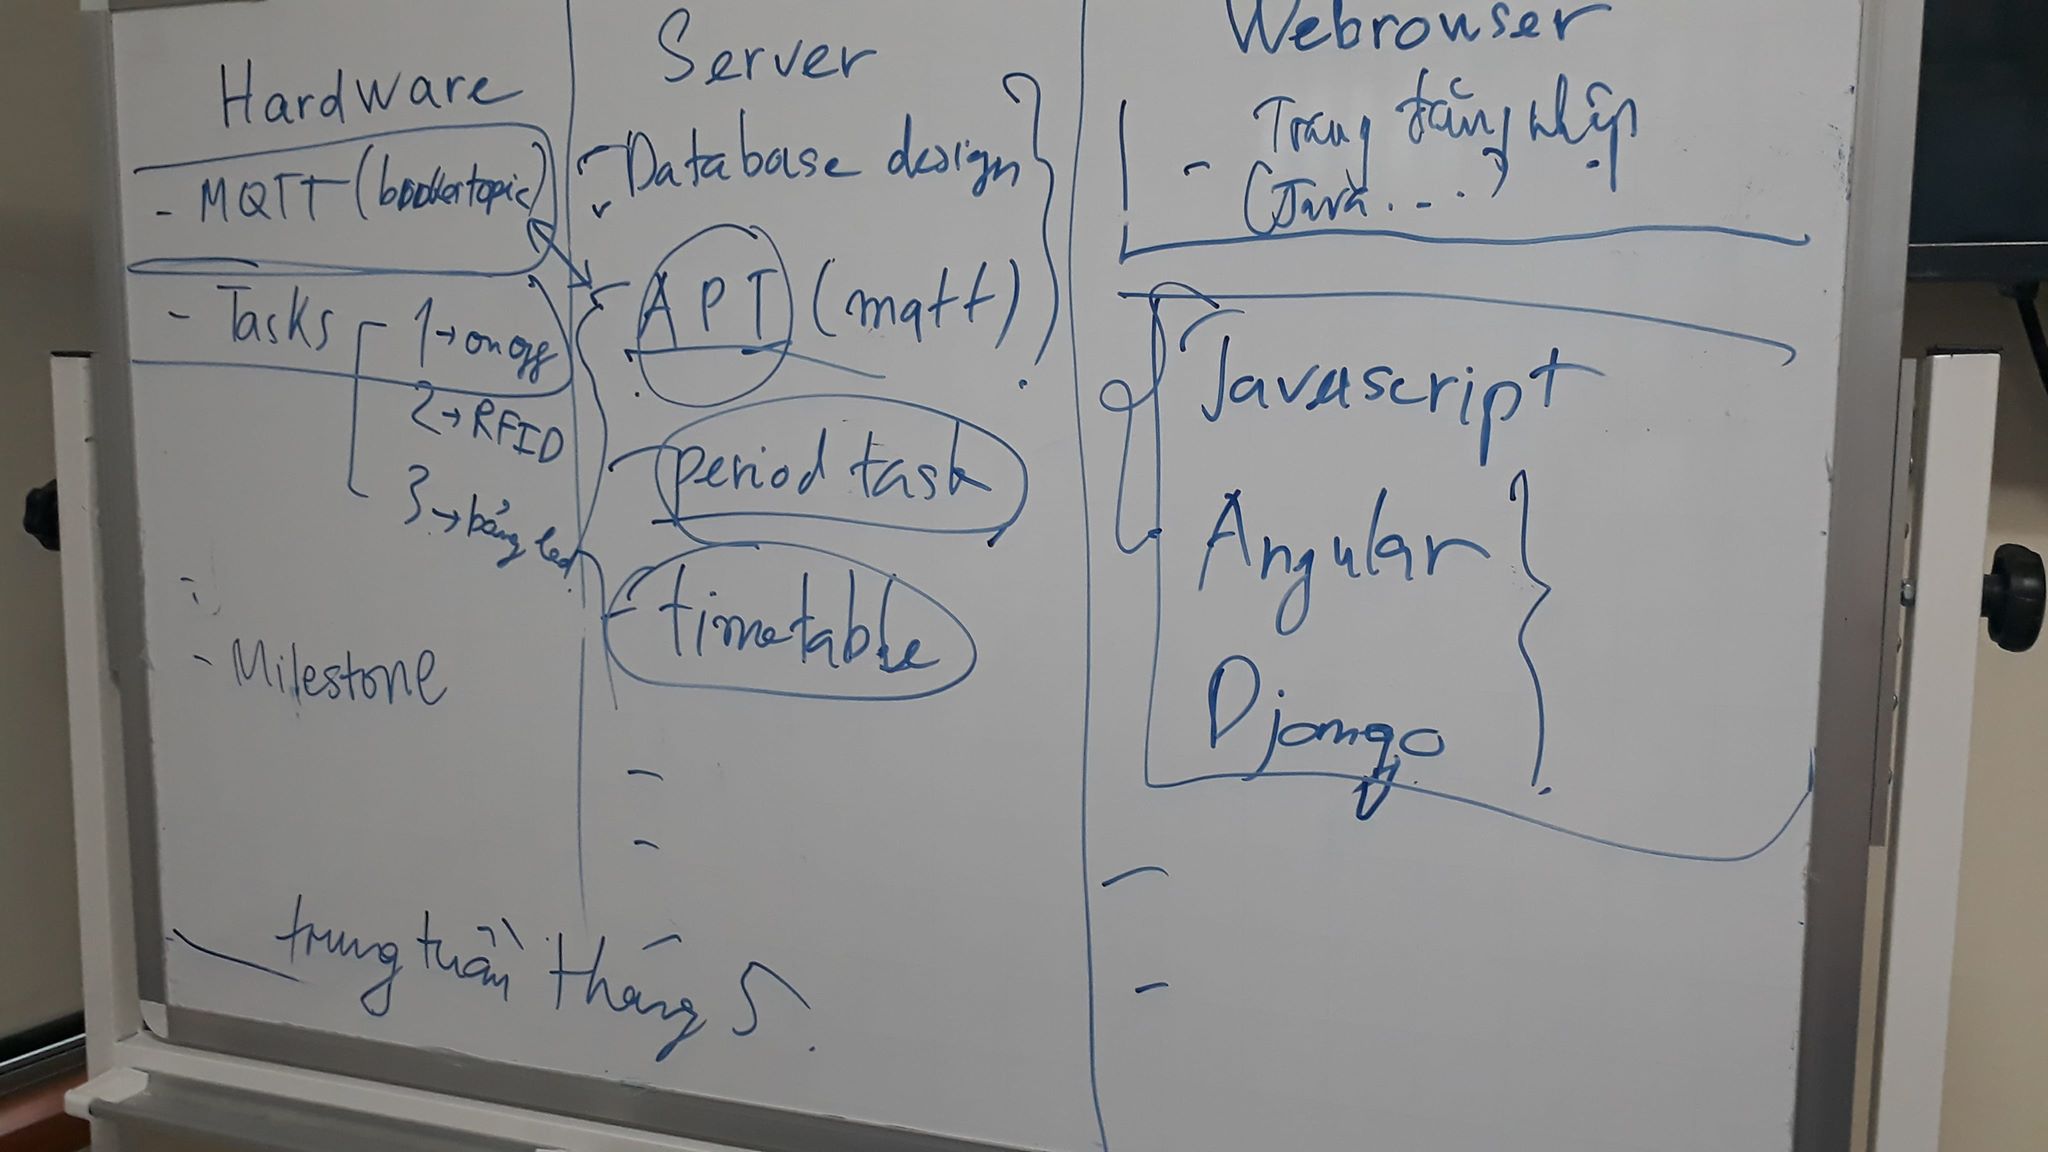 Hardware
- MQTT (brokertopic)
- Tasks
1 → on off
2 → RFID
3 → bảng led
- Milestone
trung tuần tháng 5.
Server
- Database design
- API (mqtt)
- period task
- timetable
-
-
Webrowser
- Trang đăng nhập
(Java...)
Javascript
Angular
Django
-
-